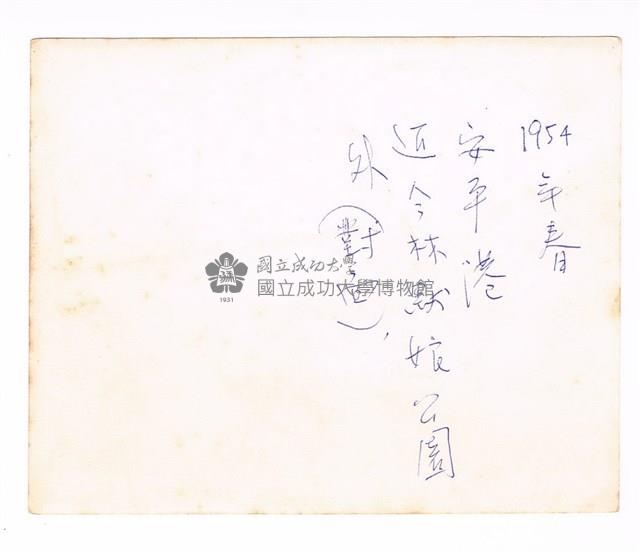 1954年春
安平港
近今林默娘公園
外(對面)
國立成功大學
國立成功大學博物館
1931